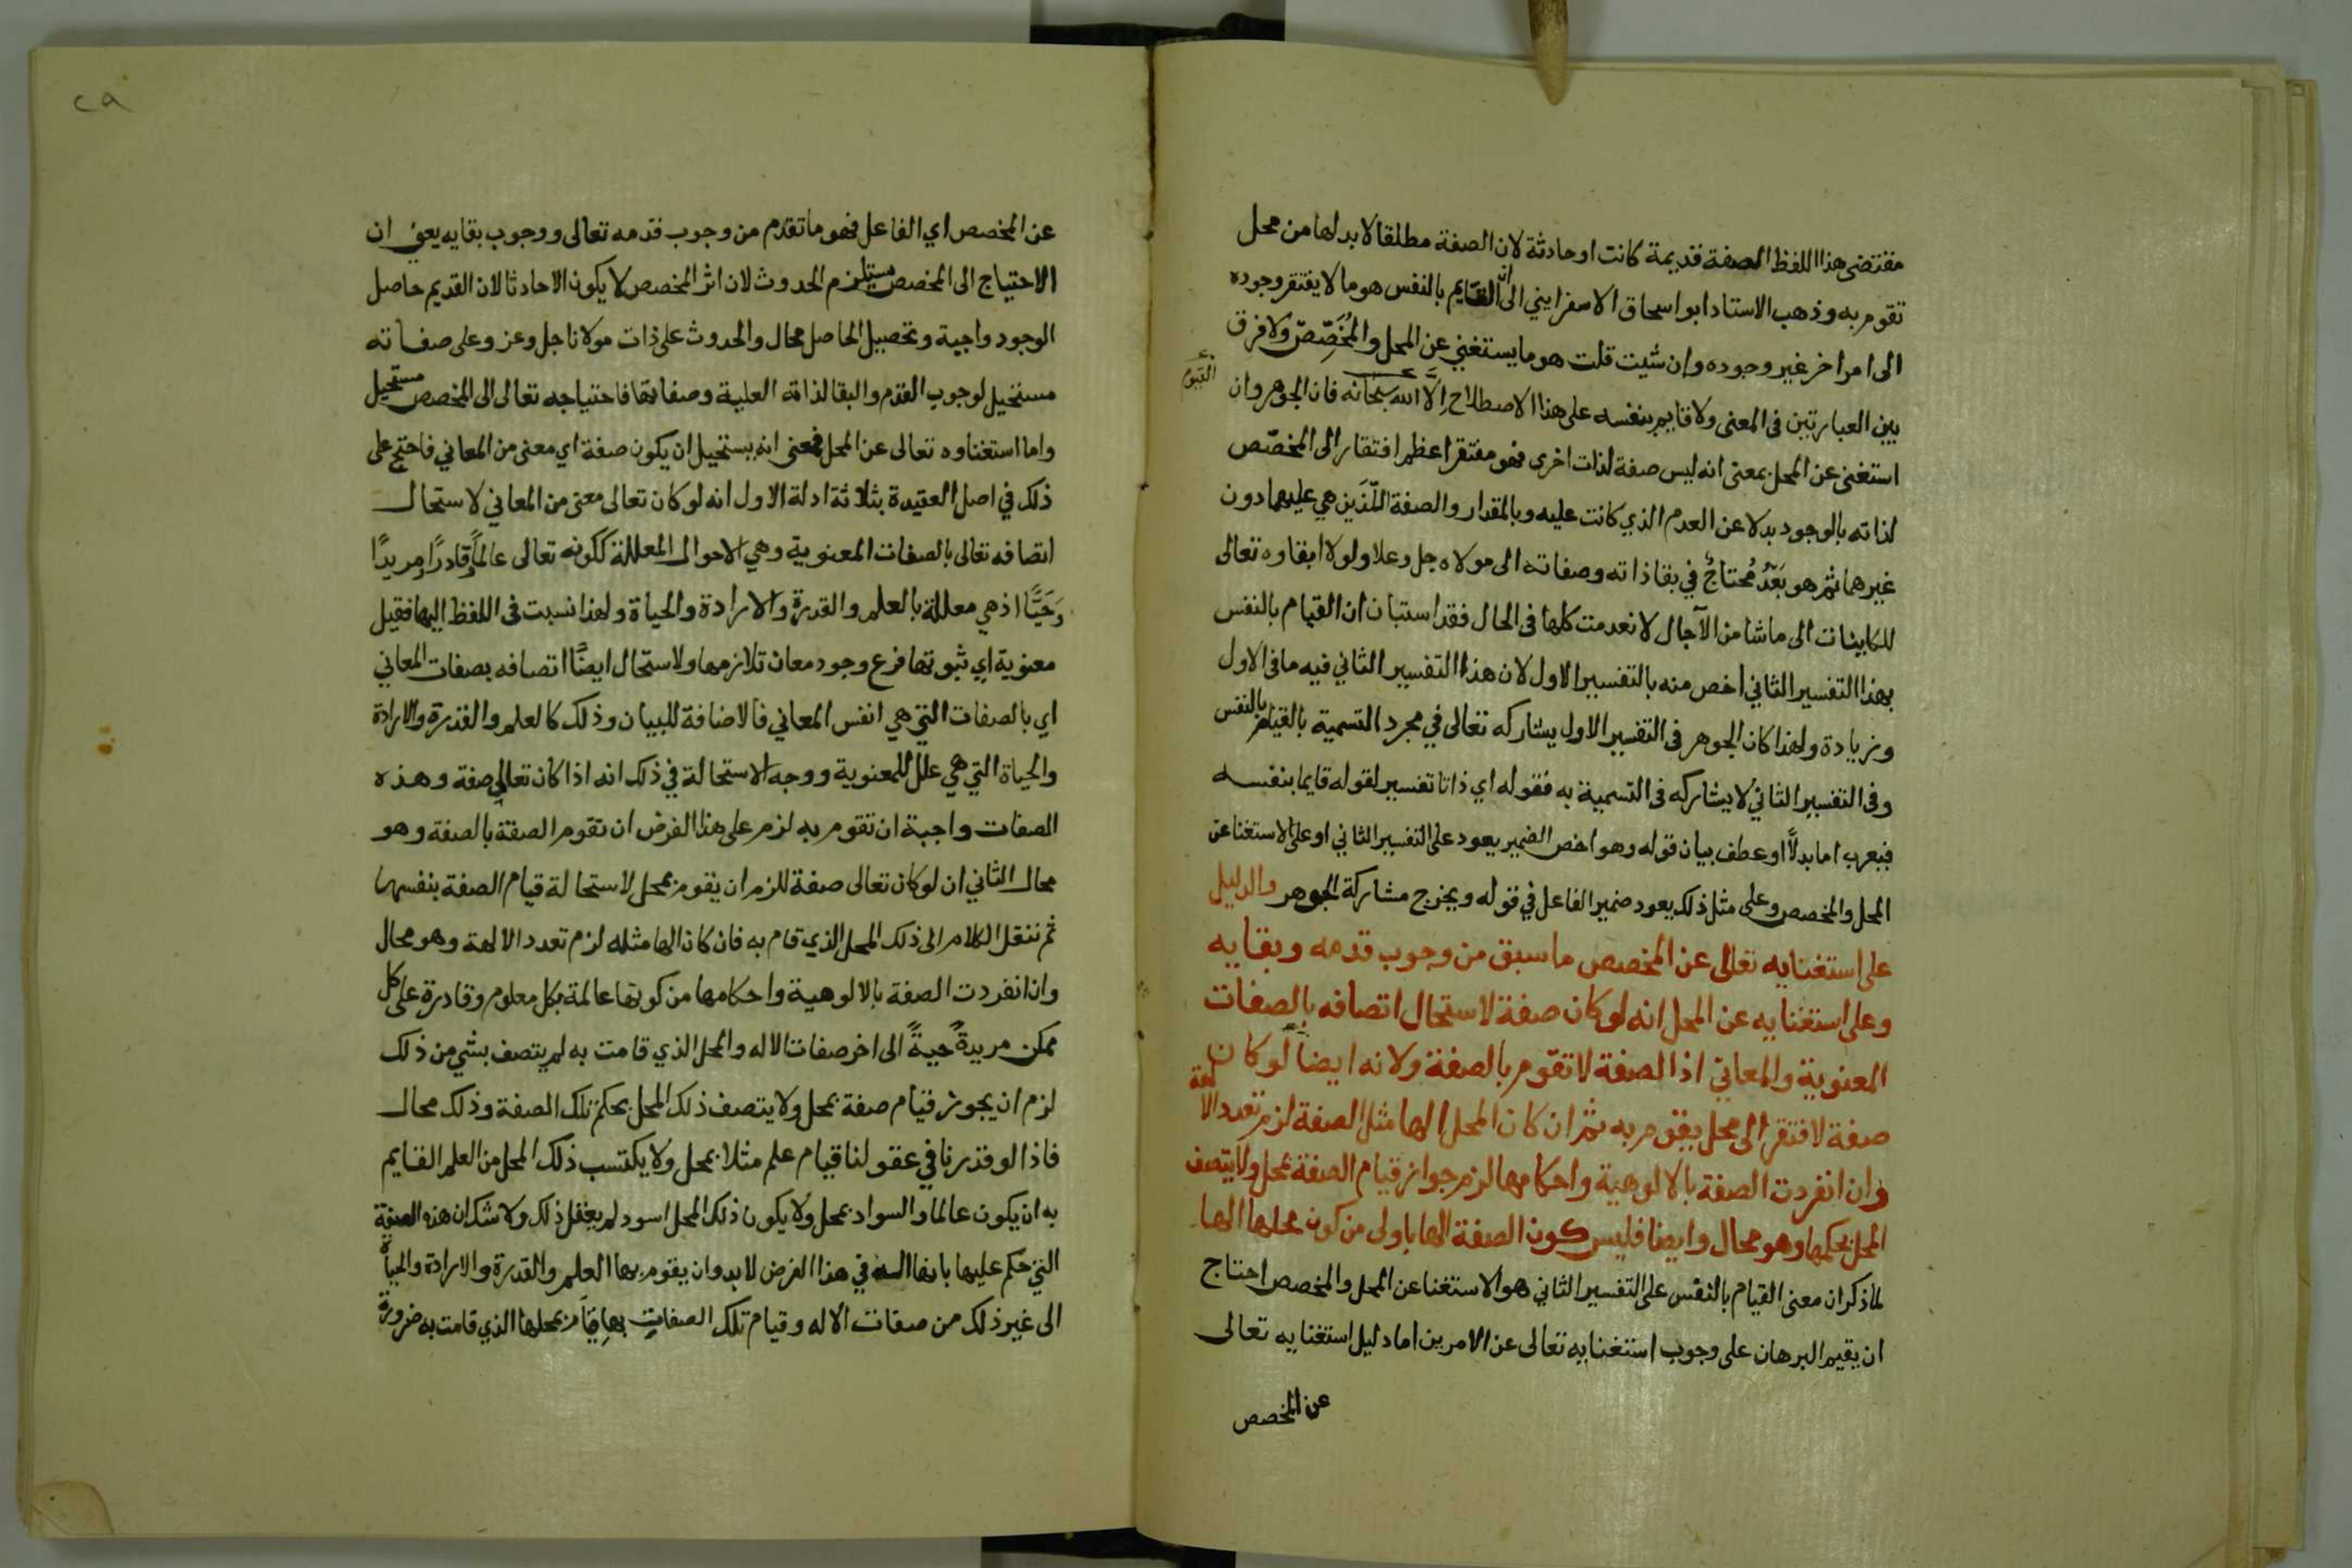 مقتضى هذا اللفظ الصفة قديمة كانت او حادثة لان الصفة مطلقا لابد لها من محل
تقوم به وذهب الاستاد ابو اسحاق الاسفرايني الى ان القايم بالنفس هو ما لا يفتقر وجوده
الى امر اخر غير وجوده وإن شئت قلت هو ما يستغني عن المحل والمُخَصِّصّ ولا فرق
بين العبارتين فى المعنى ولا قايم بنفسه على هذا الاصطلاح إلّا الله سبحانه فان الجوهر وان
القيوم
استغنى عن المحل بمعنى انه ليس صفة لذات اخرى فهو مفتقر اعظم افتقار الى المخصّص
لذاته بالوجود بدلا عن العدم الذي كانت عليه وبالمقدار والصفة اللّذَين هي عليهما دون
غيرهما ثم هو بَعْدُ مُحتاجٌ في بقا ذاته وصفاته الى مولاه جل وعلا ولولا ابقاوه تعالى
للكاينات الى ما شا من الآجال لانعدمت كلها فى الحال فقد استبان ان القيام بالنفس
بهذا التفسير الثاني اخص منه بالتفسير الاول لان هذا التفسير الثاني فيه ما فى الاول
وزيادة ولهذا كان الجوهر فى التفسير الاول يشاركه تعالى في مجرد التسمية بالقيام بالنفس
وفى التفسير الثاني لا يشاركه فى التسمية به فقوله اي ذاتا تفسير لقوله قايما بنفسه
فيعرب اما بدلًا او عطف بيان قوله وهو اخص الضمير يعود على التفسير الثاني او على الاستغنا عن
المحل والمخصص وعلى مثل ذلك يعود ضمير الفاعل في قوله ويخرج مشاركة الجوهر والدليل
على استغنايه تعالى عن المخصص ما سبق من وجوب قدمه وبقايه
وعلى استغنايه عن المحل انه لو كان صفة لاستحال اتصافه بالصفات
المعنوية والمعاني اذ الصفة لا تقوم بالصفة ولانه ايضا لو كان
صفة لافتقر الى محل يقوم به ثم ان كان المحل الها مثل الصفة لزم تعدد الالهة
وان انفردت الصفة بالالوهية واحكامها لزم جواز قيام الصفة بمحل ولا يتصف
المحل بحكمها وهو محال وايضا فليس كون الصفة الها باولى من كون محلها الها
لما ذكر ان معنى القيام بالنفس على التفسير الثاني هو الاستغنا عن المحل والمخصص احتاج
ان يقيم البرهان على وجوب استغنايه تعالى عن الامرين اما دليل استغنايه تعالى
عن المخصص
٢٩
عن المخصص اي الفاعل فهو ما تقدم من وجوب قدمه تعالى ووجوب بقايه يعني ان
الاحتياج الى المخصص مستلزم الحدوث لان اثر المخصص لا يكون الا حادثا لان القديم حاصل
الوجود واجبة وتحصيل الحاصل محال والحدوث على ذات مولانا جل وعز وعلى صفاته
مستحيل لوجوب القدم والبقا لذاته العلية وصفاتها فاحتياجه تعالى الى المخصص مستحيل
واما استغناوه تعالى عن المحل فمعنى انه يستحيل ان يكون صفة اي معنى من المعاني فاحتج على
ذلك في اصل العقيدة بثلاثة ادلة الاول انه لو كان تعالى معنى من المعاني لاستحال
اتصافه تعالى بالصفات المعنوية وهي الاحوال المعللة ككونه تعالى عالمًا وقادرًا ومريدًا
وَحَيًّا اذ هي معللة بالعلم والقدرة والارادة والحياة ولهذا نسبت فى اللفظ اليها فقيل
معنوية اي ثبوتها فرع وجود معان تلازمها ولاستحال ايضًا اتصافه بصفات المعاني
اي بالصفات التي هي انفس المعاني فالاضافة للبيان وذلك كالعلم والقدرة والارادة
والحياة التي هي علل للمعنوية ووجه الاستحالة في ذلك انه اذا كان تعالى صفة وهذه
الصفات واجبة ان تقوم به لزم على هذا الفرض ان تقوم الصفة بالصفة وهو
محال الثاني ان لو كان تعالى صفة للزم ان يقوم بمحل لاستحالة قيام الصفة بنفسها
ثم ننقل الكلام الى ذلك المحل الذي قام به فان كان الها مثله لزم تعدد الالهة وهو محال
وان انفردت الصفة بالالوهية واحكامها من كونها عالمة بكل معلوم وقادرة على كل
ممكن مريدةً حيةً الى اخر صفات الاله والمحل الذي قامت به لم يتصف بشي من ذلك
لزم ان يجوز قيام صفة بمحل ولا يتصف ذلك المحل بحكم تلك الصفة وذلك محال
فاذا لو قدرنا في عقولنا قيام علم مثلا بمحل ولا يكتسب ذلك المحل من العلم القايم
به ان يكون عالما والسواد بمحل ولا يكون ذلك المحل اسود لم يعقل ذلك ولا شك ان هذه الصفة
التي حكم عليها بانها اله في هذا الفرض لابد وان يقوم بها العلم والقدرة والارادة والحياة
الى غير ذلك من صفات الاله وقيام تلك الصفات بها قيام بمحلها الذي قامت به ضرورة